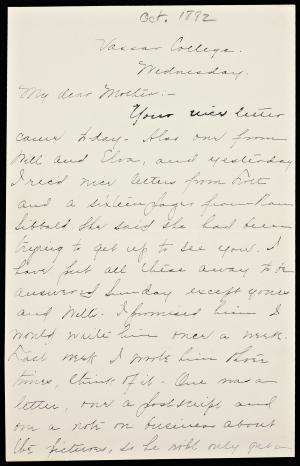 Oct. 1892
Vassar College.
Wednesday.
My dear Mother:-
Your nice letter
came today. Also one from
Will and Elva, and yesterday
I rec'd nice letters from Lott
and a sixteen pager from
Sibbald. She said she had been
trying to get up to see you. I
have put all these away to be
answered Sunday except yours
and Will's. I promised him I
would write him once a week.
Last week I wrote him three
times, think of it. One was a
letter, one a postscript and
one a note on business about
the pictures, so he will only get a